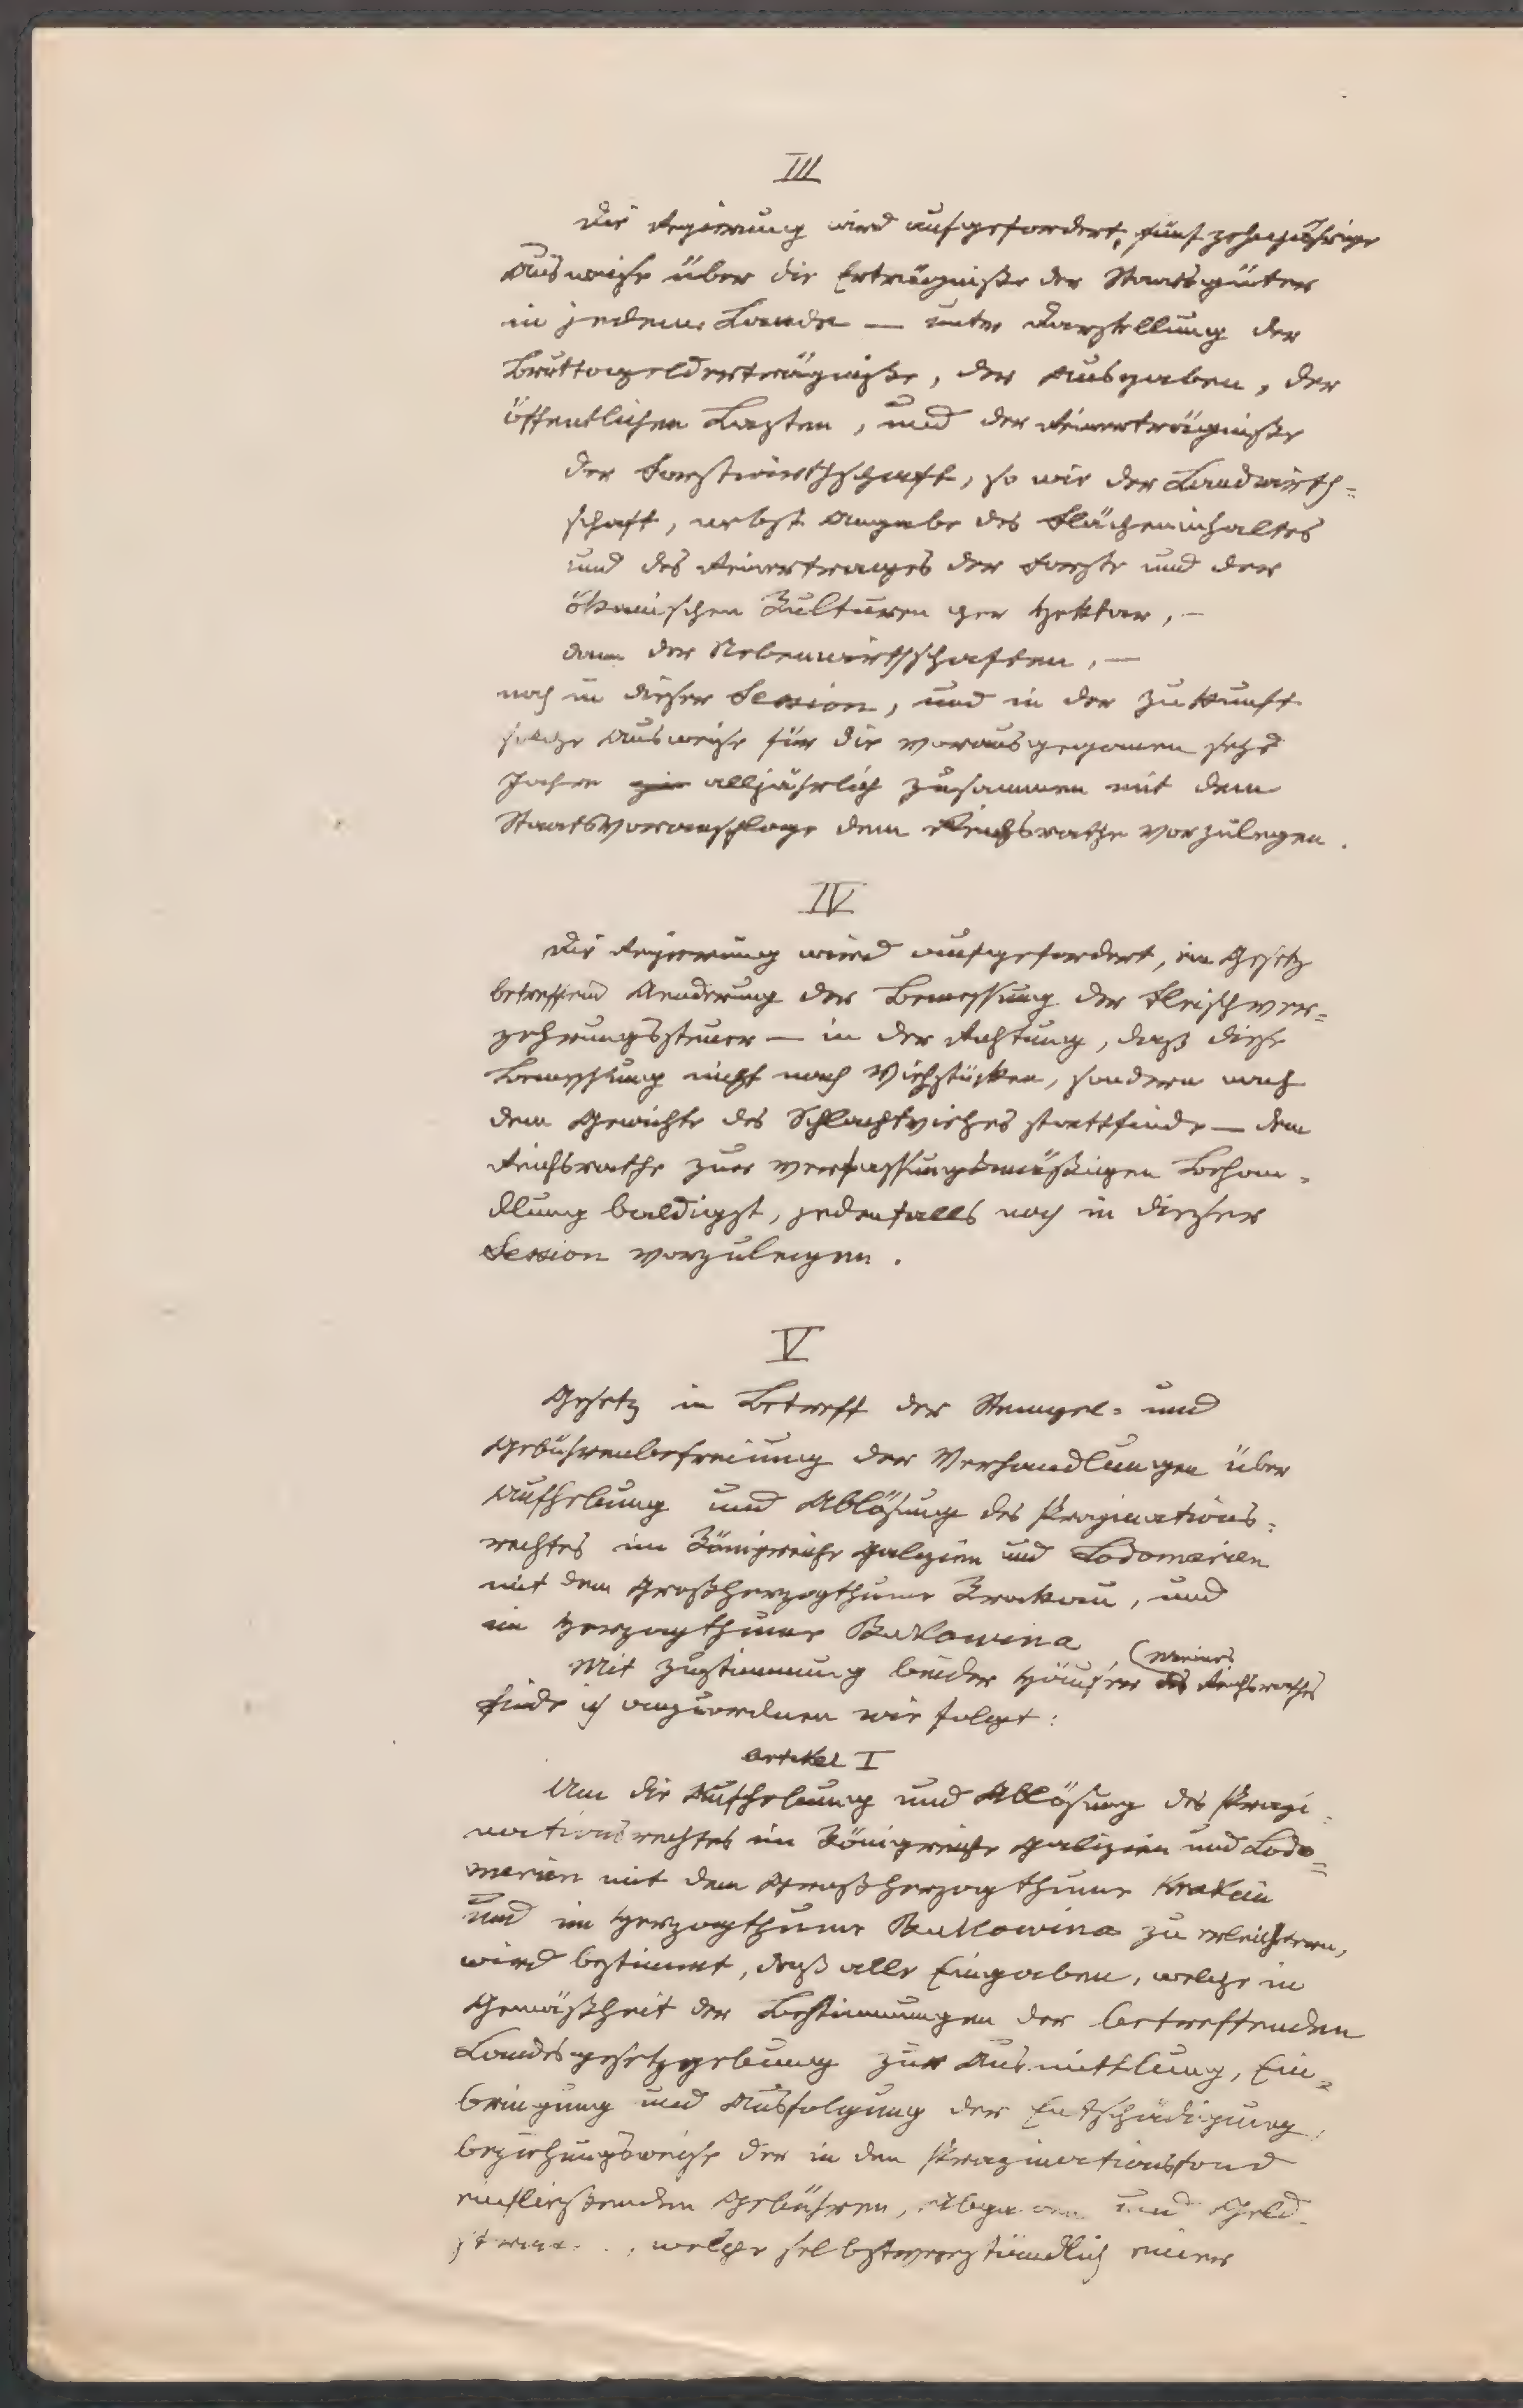 III
Die Regierung wird aufgefordert, fünfzehnjährige
Ausweise über die Erträgniße der Staatsgüter
in jedem Lande — unter Darstellung der
Bruttogelderträgniße, der Ausgaben, der
öffentlichen Lasten, und der Reinerträgniße
der Forstwirthschaft, so wie der Landwirth=
schaft, nebst Angabe des Flächeninhaltes
und des Reinertrages der Forste und der
ökonischen Kulturen per Hektar, —
dann der Nebenwirthschaften, —
noch in dieser Session, und in der Zukunft
solche Ausweise für die vorausgegangenen sechs
Jahre alljährlich zusammen mit dem
Staatsvoranschlage dem Reichsrathe vorzulegen.
IV
Die Regierung wird aufgefordert, ein Gesetz
betreffend Aenderung der Bemessung der Fleischver=
zehrungssteuer — in der Richtung, daß diese
Bemessung nicht nach Viehstücken, sondern nach
dem Gewichte des Schlachtviehes stattfinde — dem
Reichsrathe zur verfassungsmäßigen Behan=
dlung baldigst, jedenfalls noch in dieser
Session vorzulegen.
V
Gesetz in Betreff der Stempel= und
Gebührenbefreiung der Verhandlungen über
Aufhebung und Ablösung des Propinations=
rechtes im Königreiche Galizien und Lodomerien
mit dem Großherzogthume Krakau, und
im Herzogthume Bukowina.
Mit Zustimmung beider Häuser des (Meines Reichsrathes
finde ich anzuordnen wie folgt:
Artikel I
Um die Aufhebung und Ablösung des Propi=
nationsrechtes im Königreiche Galizien und Lodo=
merien mit dem Großherzogthume Krakau
und im Herzogthume Bukowina zu erleichtern,
wird bestimmt, daß alle Eingaben, welche in
Gemäßheit der Bestimmungen der betreffenden
Landesgesetzgebung zur Ausmittlung, Ein=
bringung und Ausfolgung der Entschädigung,
beziehungsweise der in den Propinationsfond
einfließenden Gebühren, Abgaben und Geld
welche selbstverständlich einer